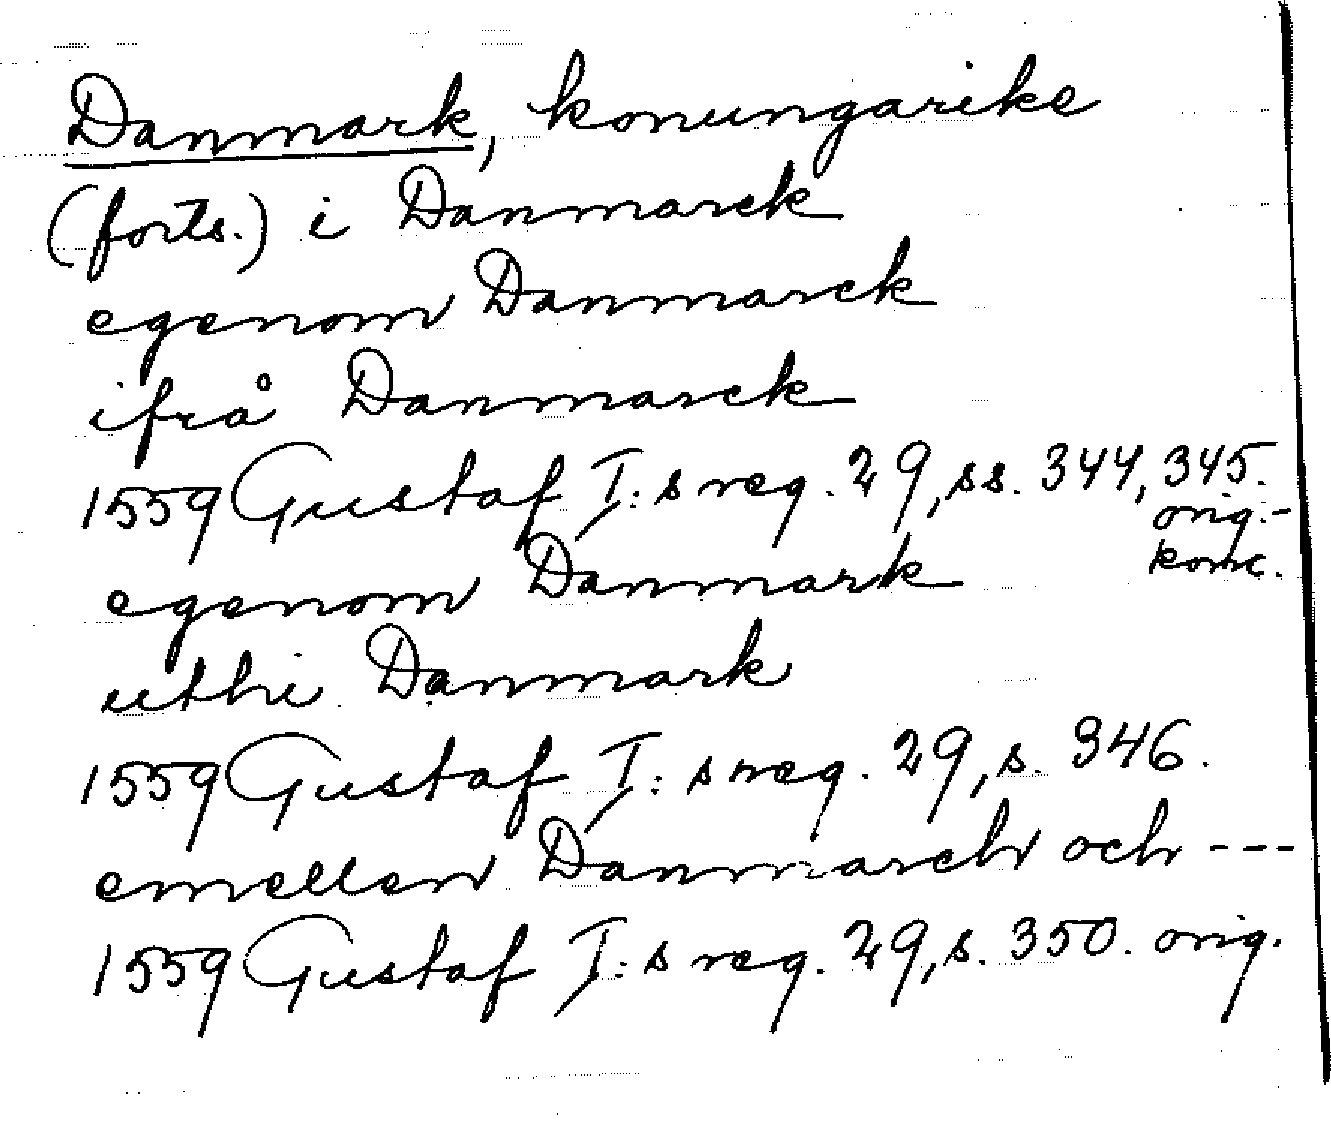 Danmark, konungarike
(forts.) i Danmarck
egenom Danmarck
ifrå Danmarck
1559 Gustaf I:s reg. 29, ss. 344, 345.
orig.-
konc.
egenom Danmark
uthi Danmark
1559 Gustaf I:s reg. 29, s. 346.
emellen Danmarch och ---
1559 Gustaf I:s reg. 29, s. 350. orig.